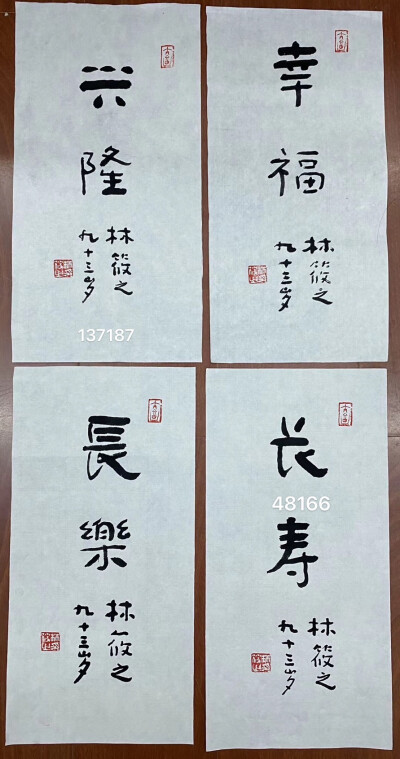 兴
隆
林筱之
九十三岁
137187
幸
福
林筱之
九十三岁
長
樂
林筱之
九十三岁
长
48166
寿
林筱之
九十三岁